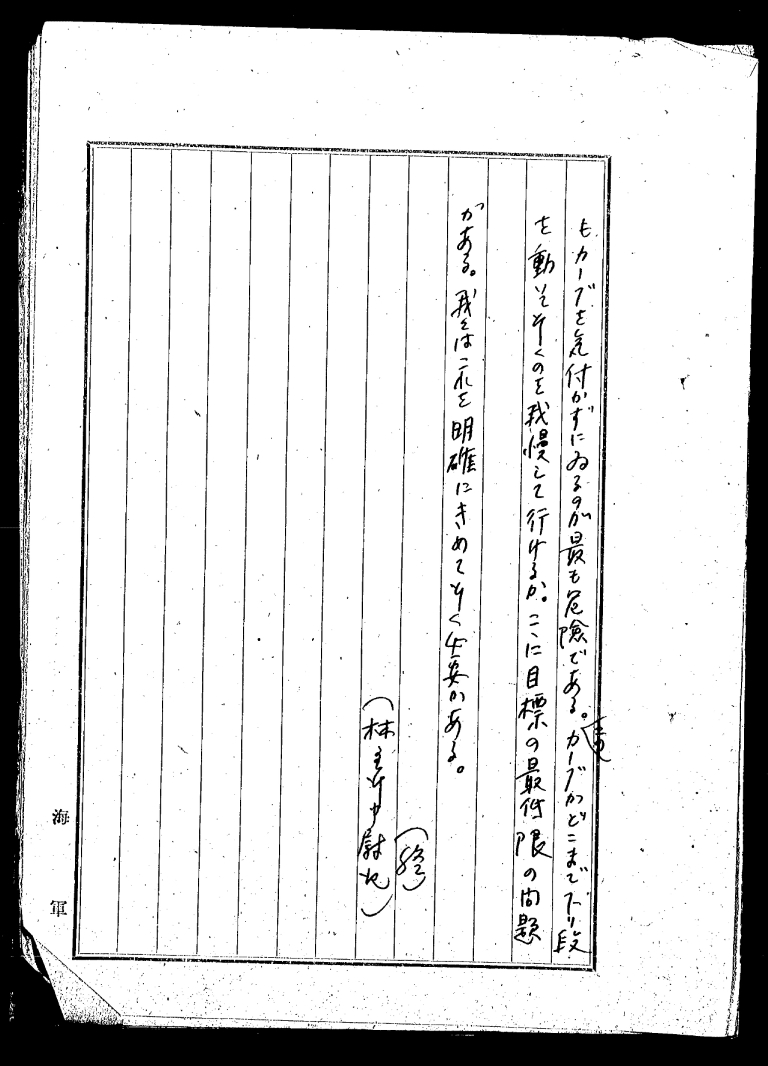 もカーブを気付かずにゐるのが最も危険である。カーブがどこまで下り段
を動いて行くのを我慢して行けるか。こゝに目標の最低限の問題
がある。我々はこれを明確にきめて行く必要がある。
(終)
(林主計中尉記)
海軍